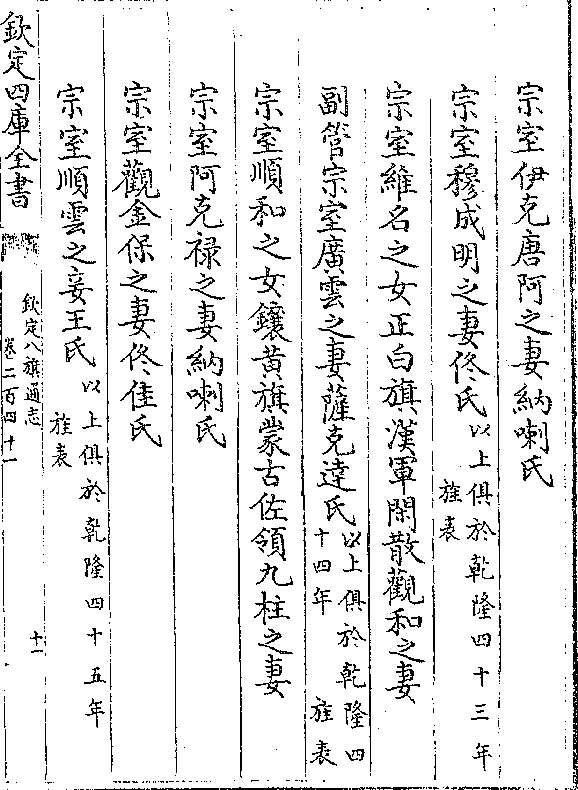 宗室伊克唐阿之妻納喇氏
宗室穆成明之妻佟氏以上俱於乾隆四十三年
旌表
宗室維名之女正白旗漢軍閑散觀和之妻
副管宗室廣雲之妻薩克達氏以上俱於乾隆四
十四年 旌表
宗室順和之女鑲黄旗蒙古佐領九柱之妻
宗室阿克禄之妻納喇氏
宗室觀金保之妻佟佳氏
宗室順雲之妾王氏以上俱於乾隆四十五年
旌表
欽定四庫全書
欽定八旗通志
卷二百四十一
十一